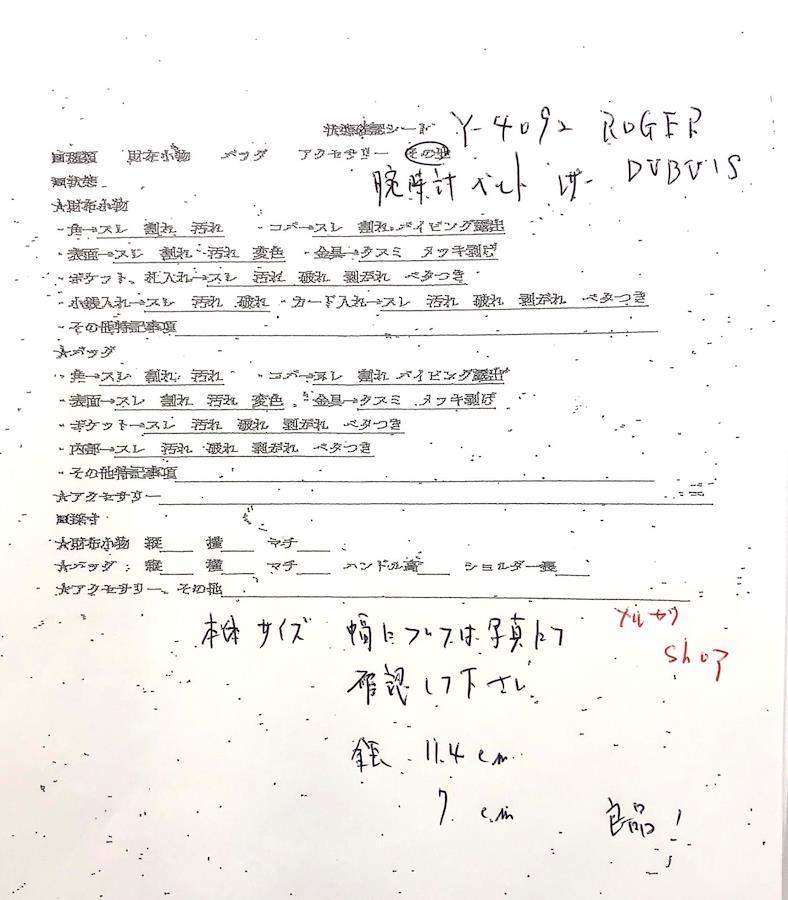 状態確認シート Y-4092 ROGER
■種類 財布小物 バッグ アクセサリー その他 DUBUIS
腕時計ベルト レザー
■状態
★財布小物
・角→スレ 割れ 汚れ ・コバ→スレ 割れ パイピング露出
・表面→スレ 割れ 汚れ 変色 ・金具→クスミ メッキ剥げ
・ポケット、札入れ→スレ 汚れ 破れ 剥がれ ベタつき
・小銭入れ→スレ 汚れ 破れ ・カード入れ→スレ 汚れ 破れ 剥がれ ベタつき
・その他特記事項
★バッグ
・角→スレ 割れ 汚れ ・コバ→スレ 割れ パイピング露出
・表面→スレ 割れ 汚れ 変色 ・金具→クスミ メッキ剥げ
・ポケット→スレ 汚れ 破れ 剥がれ ベタつき
・内部→スレ 汚れ 破れ 剥がれ ベタつき
・その他特記事項
★アクセサリー
■採寸
★財布小物 縦 横 マチ
★バッグ 縦 横 マチ ハンドル高 ショルダー長
★アクセサリー、その他
本体サイズ 幅については写真にて メルカリ
確認して下さい Shop
全長 11.4cm
7cm 良品!